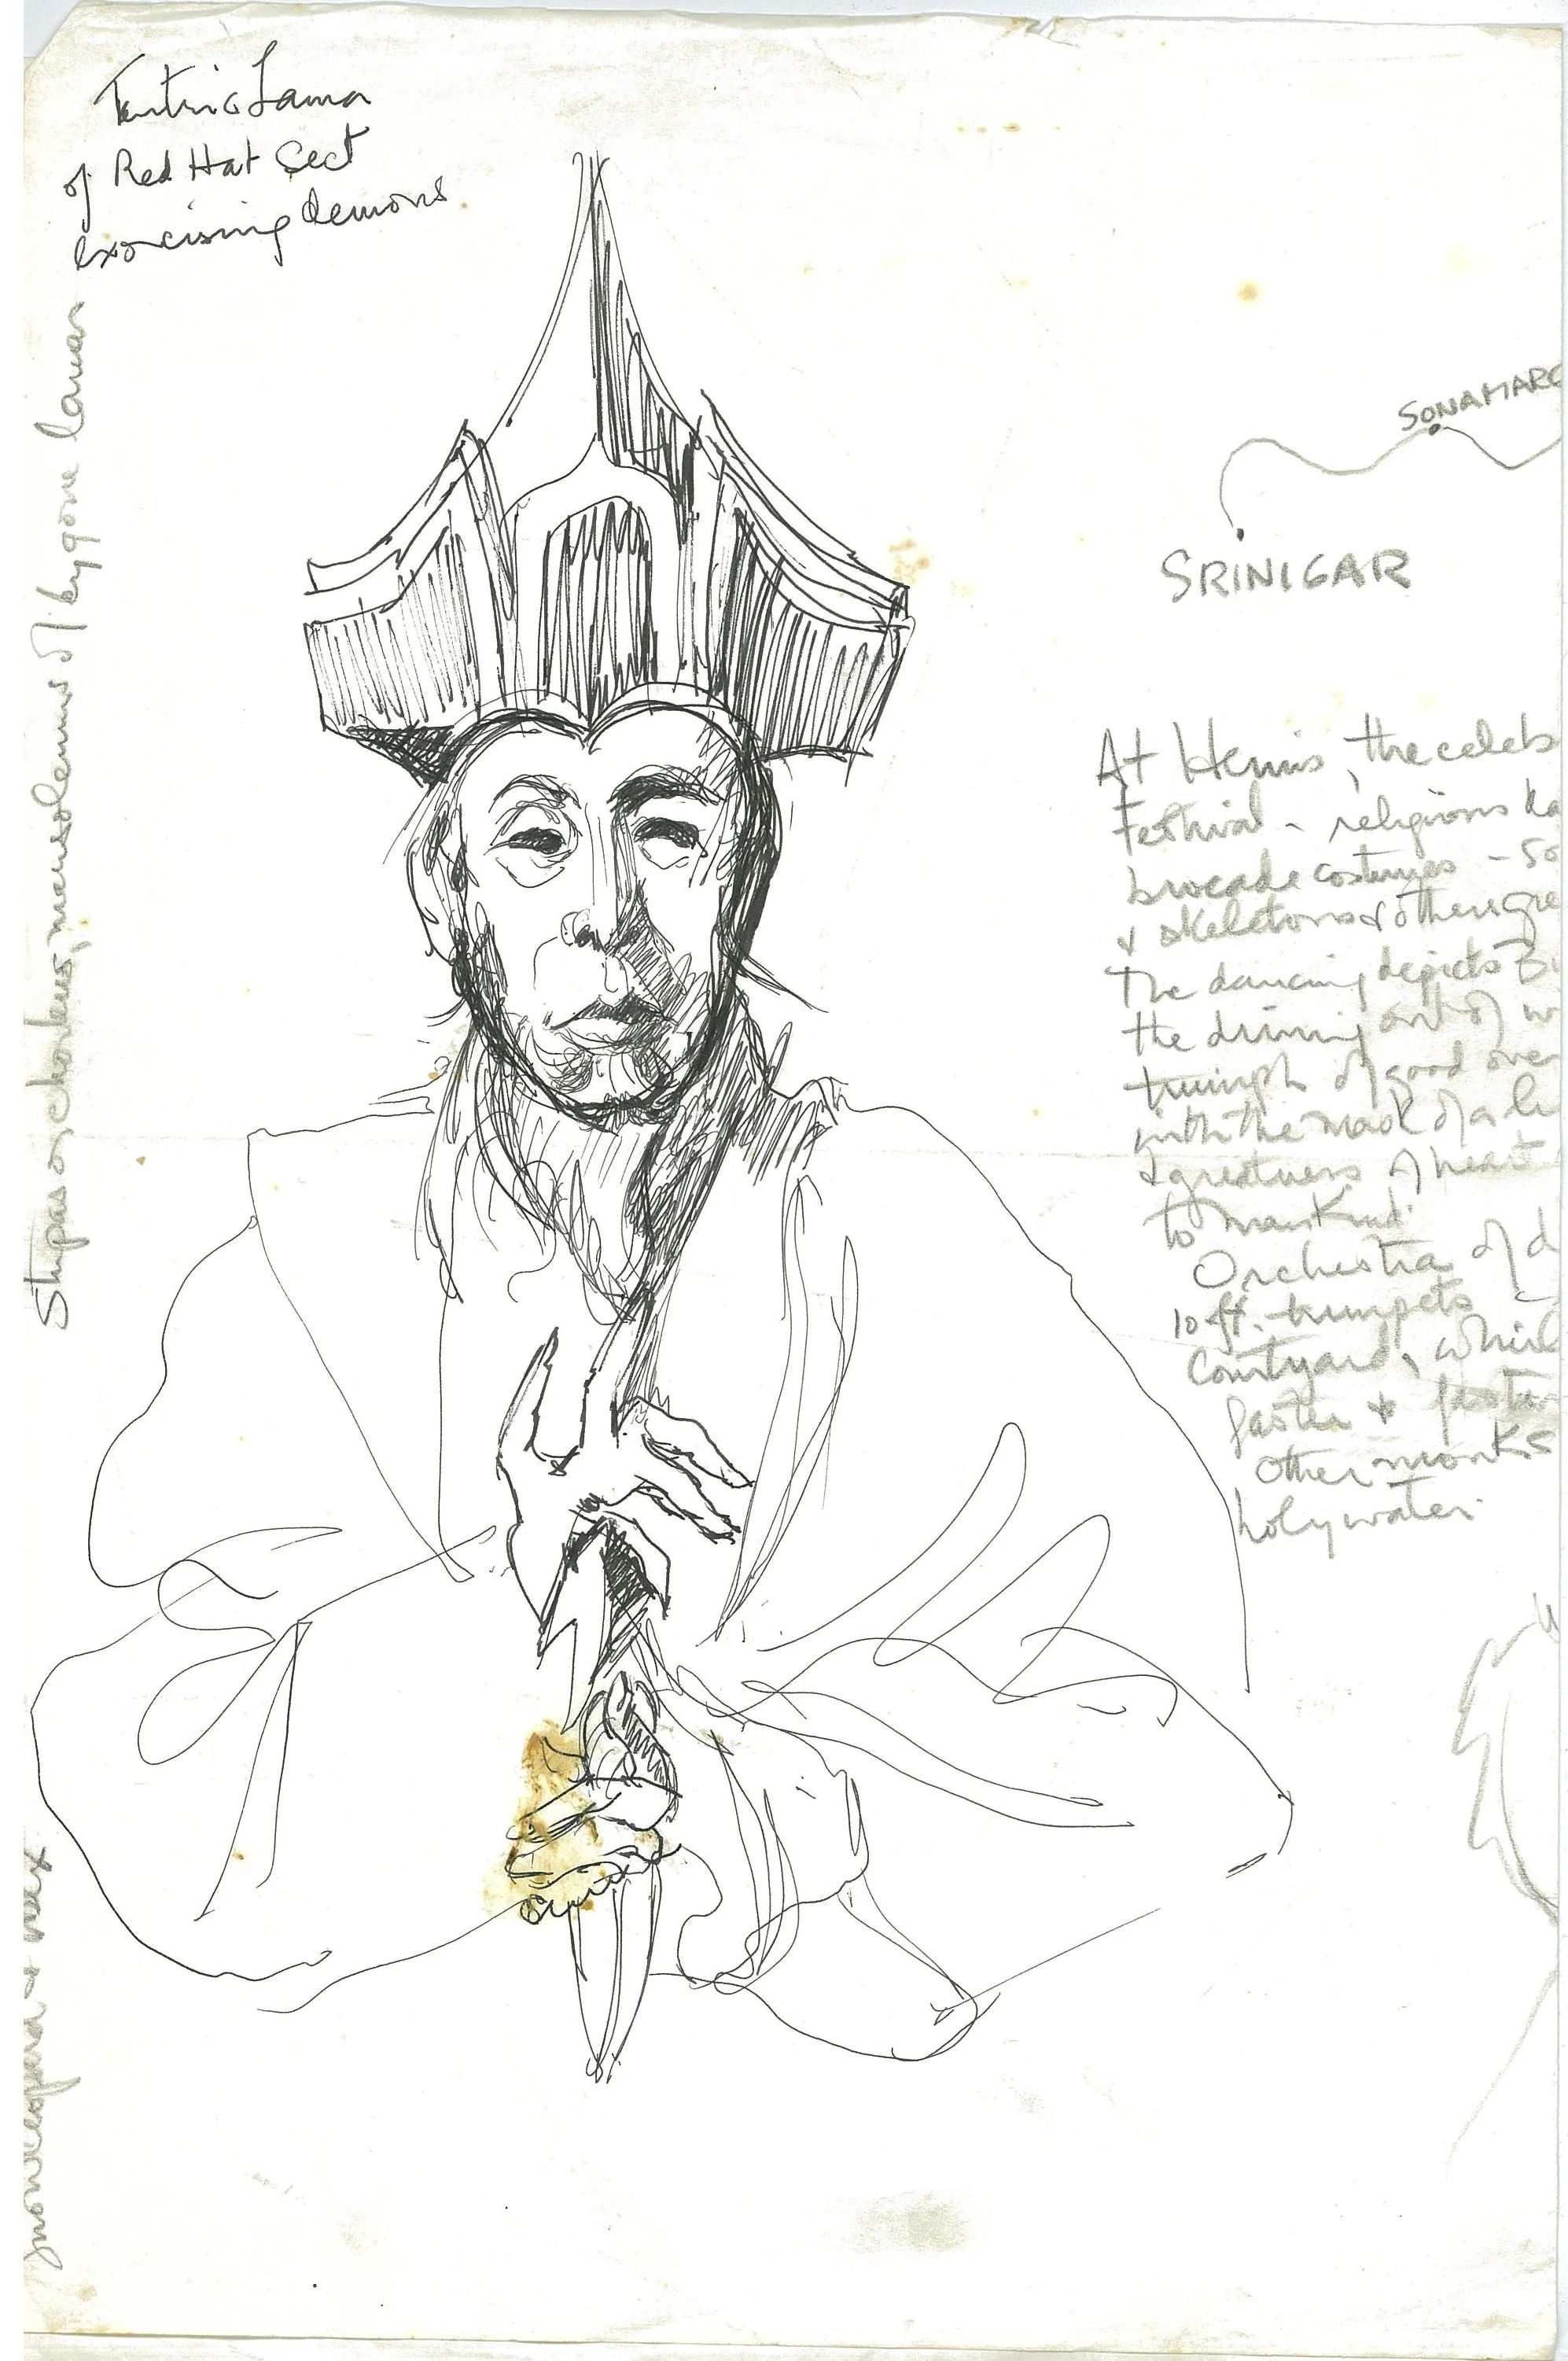 Tantric Lama
of Red Hat Sect
exorcising demons
Stupas or chortens, mausoleums of bygone lamas
snowleopard & ibex
SONAMARG
SRINIGAR
At Hemis, the celeb
Festival - religious
brocade costumes - 50
& skeletons & other
The dancing depicts
the driving out of
triumph of good over
with the mask of a
& greatness of heart
to mankind.
Orchestra of d
10 ft. trumpets
Courtyard, whirl
faster & faster
other monks
holy water.